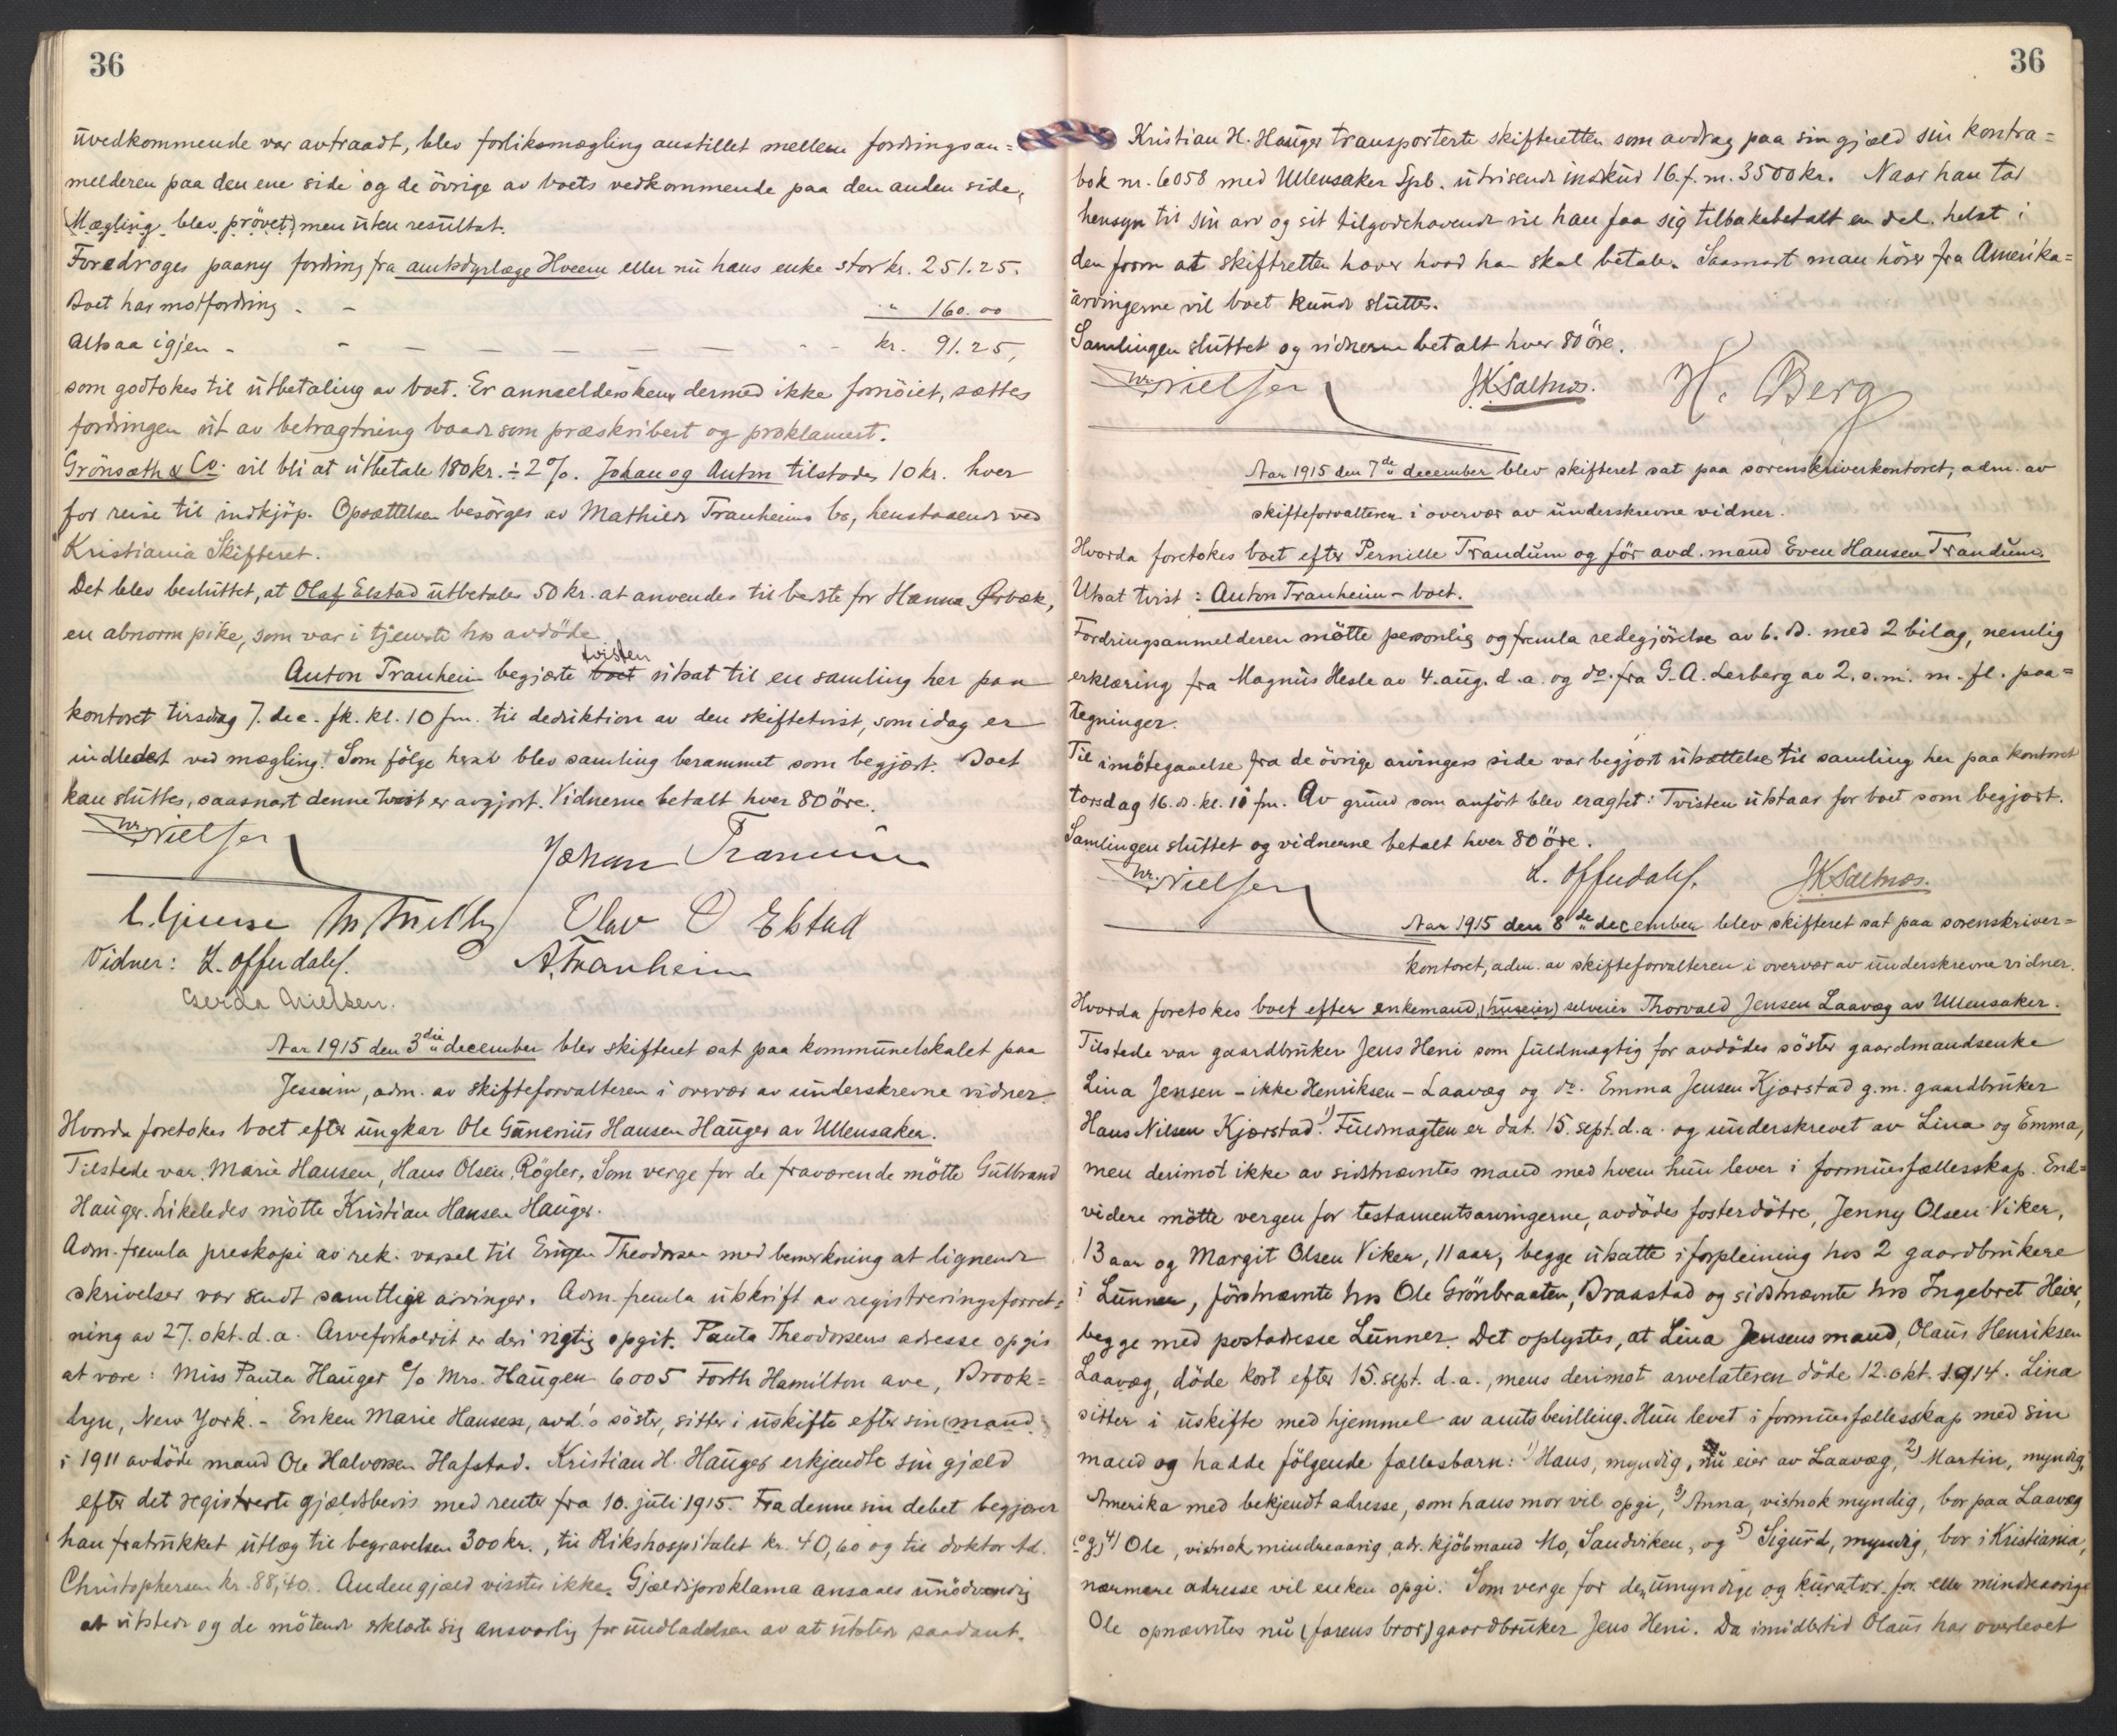 36
uvedkommende var avtraadt, blev forliksmægling anstillet mellem fordringsan=
melderen paa den ene side og de övrige av boets vedkommende paa den anden side,
(Mægling blev prövet) men uten resultat.
Foredroges paany fordring fra amtsdyrlæge Hveem eller nu hans enke stor kr. 251.25.
Boet har motfordring - - " 160.00
altsaa igjen - - - - - - - kr. 91.25,
som godtokes til utbetaling av boet. Er anmeldersken dermed ikke fornöiet, sættes
fordringen ut av betragtning baade som præskribert og proklamert.
Grönsæth & Co. vil bli at utbetale 180 kr. ÷ 2 %. Johan og Anton tilstodes 10 kr. hver
for reise til indkjöp. Opsættelsen besörges av Mathilde Tranheims bo, henstaaende ved
Kristiania Skifteret.
Det blev besluttet, at Olaf Elstad utbetales 50 kr. at anvendes til beste for Hanna Orbæk,
en abnorm pike, som var i tjeneste hos avdöde.
tvisten
Anton Tranheim begjærte boet utsat til en samling her paa
kontoret tirsdag 7. dec. fk. kl. 10 fm. til deduktion av den skiftetvist, som idag er
indledet ved mægling. Som fölge herav blev samling berammet som begjært. Boet
kan sluttes, saasnart denne tvist er avgjort. Vidnerne betalt hver 80 öre.
Nielsen
Johan
Olav O Elstad
Vidner: L. Offerdahl. A. Tranheim
Gerda Nielsen.
Aar 1915 den 3die december blev skifteret sat paa kommunelokalet paa
Jessheim, adm. av skifteforvalteren i overvær av underskrevne vidner.
Hvorda foretokes boet efter ungkar Ole Gunerius Hansen Hauger av Ullensaker.
Tilstede var Marie Hansen, Hans Olsen Rögler. Som verge for de fraværende mötte Gulbrand
Hauger. Likeledes mötte Kristian Hansen Hauger.
Adm. fremla preskopi av rek. varsel til Theodorsen med bemerkning at lignende
skrivelser var sendt samtlige arvinger. Adm. fremla utskrift av registreringsforret=
ning av 27. okt. d.a. Arveforholdet er deri rigtig opgit. Pauta Theodorsens adresse opgis
at være: Miss Pauta Hauger c/o Mrs. Haugen 6005 Forth Hamilton ave, Brook=
lyn, New York. - Enken Marie Hansen, avd.s söster, sitter i uskifte efter sin (mand)
i 1911 avdöde mand Ole Halvorsen Hafstad. Kristian H. Hauger erkjendte sin gjæld
efter det registrerte gjældsbevis med renter fra 10. juli 1915. Fra denne sin debet begjærer
han fratrukket utlæg til begravelsen 300 kr., til Rikshospitalet kr. 40,60 og til doktor Ad.
Christophersen kr. 88,40. Anden gjæld visstes ikke. Gjældsproklama ansaaes unödvendig
at utstede og de mötende erklærte sig ansvarlig for undladelsen av at utstede saadant.
36
Kristian H. Hauger transporterte skifteretten som avdrag paa sin gjæld sin kontra=
bok nr. 6058 med Ullensaker Spb. utvisende indskud 16. f.m. 3500 kr. Naar han tar
hensyn til sin arv og sit tilgodehavende vil han faa sig tilbakebetalt en del, helst i
den form at skifteretten hæver hvad han skal betale. Saasnart man hörer fra Amerika=
arvingerne vil boet kunde sluttes.
Samlingen sluttet og vidnerne betalt hver 80 öre.
Nielsen JKSaltnes. H. Berg
Aar 1915 den 7de december blev skifteret sat paa sorenskriverkontoret, adm. av
skifteforvalteren i overvær av underskrevne vidner.
Hvorda foretokes boet efter Pernille Trandum og för avd. mand Even Hansen Trandum.
Utsat tvist: Anton Tranheim - boet.
Fordringsanmelderen mötte personlig og fremla redegjörelse av 6. ds. med 2 bilag, nemlig
erklæring fra Magnus Hesle av 4. aug. d.a. og do. fra G. A. Lerberg av 2. s.m. m. fl. paa=
tegninger.
Til imötegaaelse fra de övrige arvingers side var begjært utsættelse til samling her paa kontoret
torsdag 16. ds. kl. 10 fm. Av grund som anfört blev eragtet: Tvisten utstaar for boet som begjært.
Samlingen sluttet og vidnerne betalt hver 80 öre.
Nielsen L. Offerdahl. JKSaltnes.
Aar 1915 den 8de december blev skifteret sat paa sorenskriver=
kontoret, adm. av skifteforvalteren i overvær av underskrevne vidner.
Hvorda foretokes boet efter enkemand, (huseier) selveier Thorvald Jensen Laavæg av Ullensaker.
Tilstede var gaardbruker Jens Heni som fuldmægtig for avdödes söster gaardmandsenke
Lina Jensen - ikke Henriksen - Laavæg og do. Emma Jensen Kjærstad g.m. gaardbruker
Hans Nilsen Kjærstad. 1) Fuldmagten er dat. 15. sept. d.a. og underskrevet av Lina og Emma,
men derimot ikke av sidstnævntes mand med hvem hun lever i formuesfællesskap. End=
videre mötte vergen for testamentsarvingerne, avdödes fosterdötre, Jenny Olsen Viker,
13 aar og Margit Olsen Viker, 11 aar, begge utsatte i forpleining hos 2 gaardbrukere
i Lunner, förstnævnte hos Ole Grönbraaten, Braastad og sidstnævnte hos Ingebret Heier,
begge med postadresse Lunner. Det oplystes, at Lina Jensens mand, Olaus Henriksen
Laavæg, döde kort efter 15. sept. d.a., mens derimot arvelateren döde 12. okt. 1914. Lina
sitter i uskifte med hjemmel av amtsbevilling. Hun levet i formuesfællesskap med sin
mand og hadde fölgende fællesbarn: 1) Hans, myndig, nu eier av Laavæg, 2) Martin, myndig,
Amerika med bekjendt adresse, som hans mor vil opgi, 3) Anna, vistnok myndig, bor paa Laavæg
(og) 4) Ole, vistnok mindreaarig, adr. kjöbmand Mo, Sandviken, og 5) Sigurd, myndig, bor i Kristiania,
nærmere adresse vil enken opgi. Som verge for den umyndige og kurator for eller mindreaarige
Ole opnævntes nu (farens bror) gaardbruker Jens Heni. Da imidlertid Olaus har overlevet